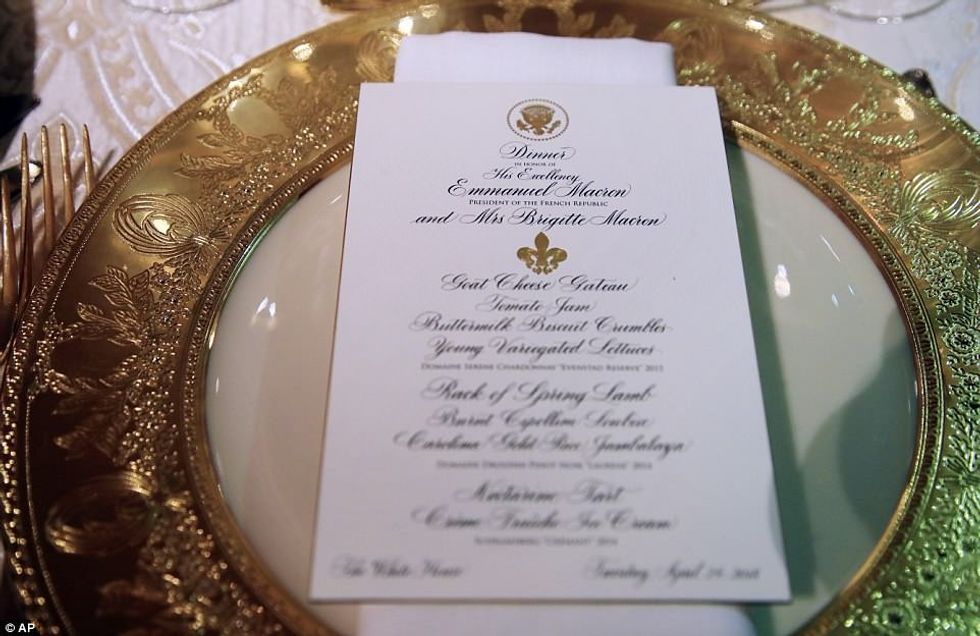 Dinner
IN HONOR OF
His Excellency
Emmanuel Macron
PRESIDENT OF THE FRENCH REPUBLIC
and Mrs Brigitte Macron
Goat Cheese Gateau
Tomato Jam
Buttermilk Biscuit Crumbles
Young Variegated Lettuces
DOMAINE SERENE CHARDONNAY "EVENSTAD RESERVE" 2015
Rack of Spring Lamb
Burnt Cipollini Soubise
Carolina Gold Rice Jambalaya
DOMAINE DROUHIN PINOT NOIR "LAURÈNE" 2014
Nectarine Tart
Crème Fraîche Ice Cream
SCHRAMSBERG "CRÉMANT" 2014
The White House Tuesday, April 24, 2018
© AP